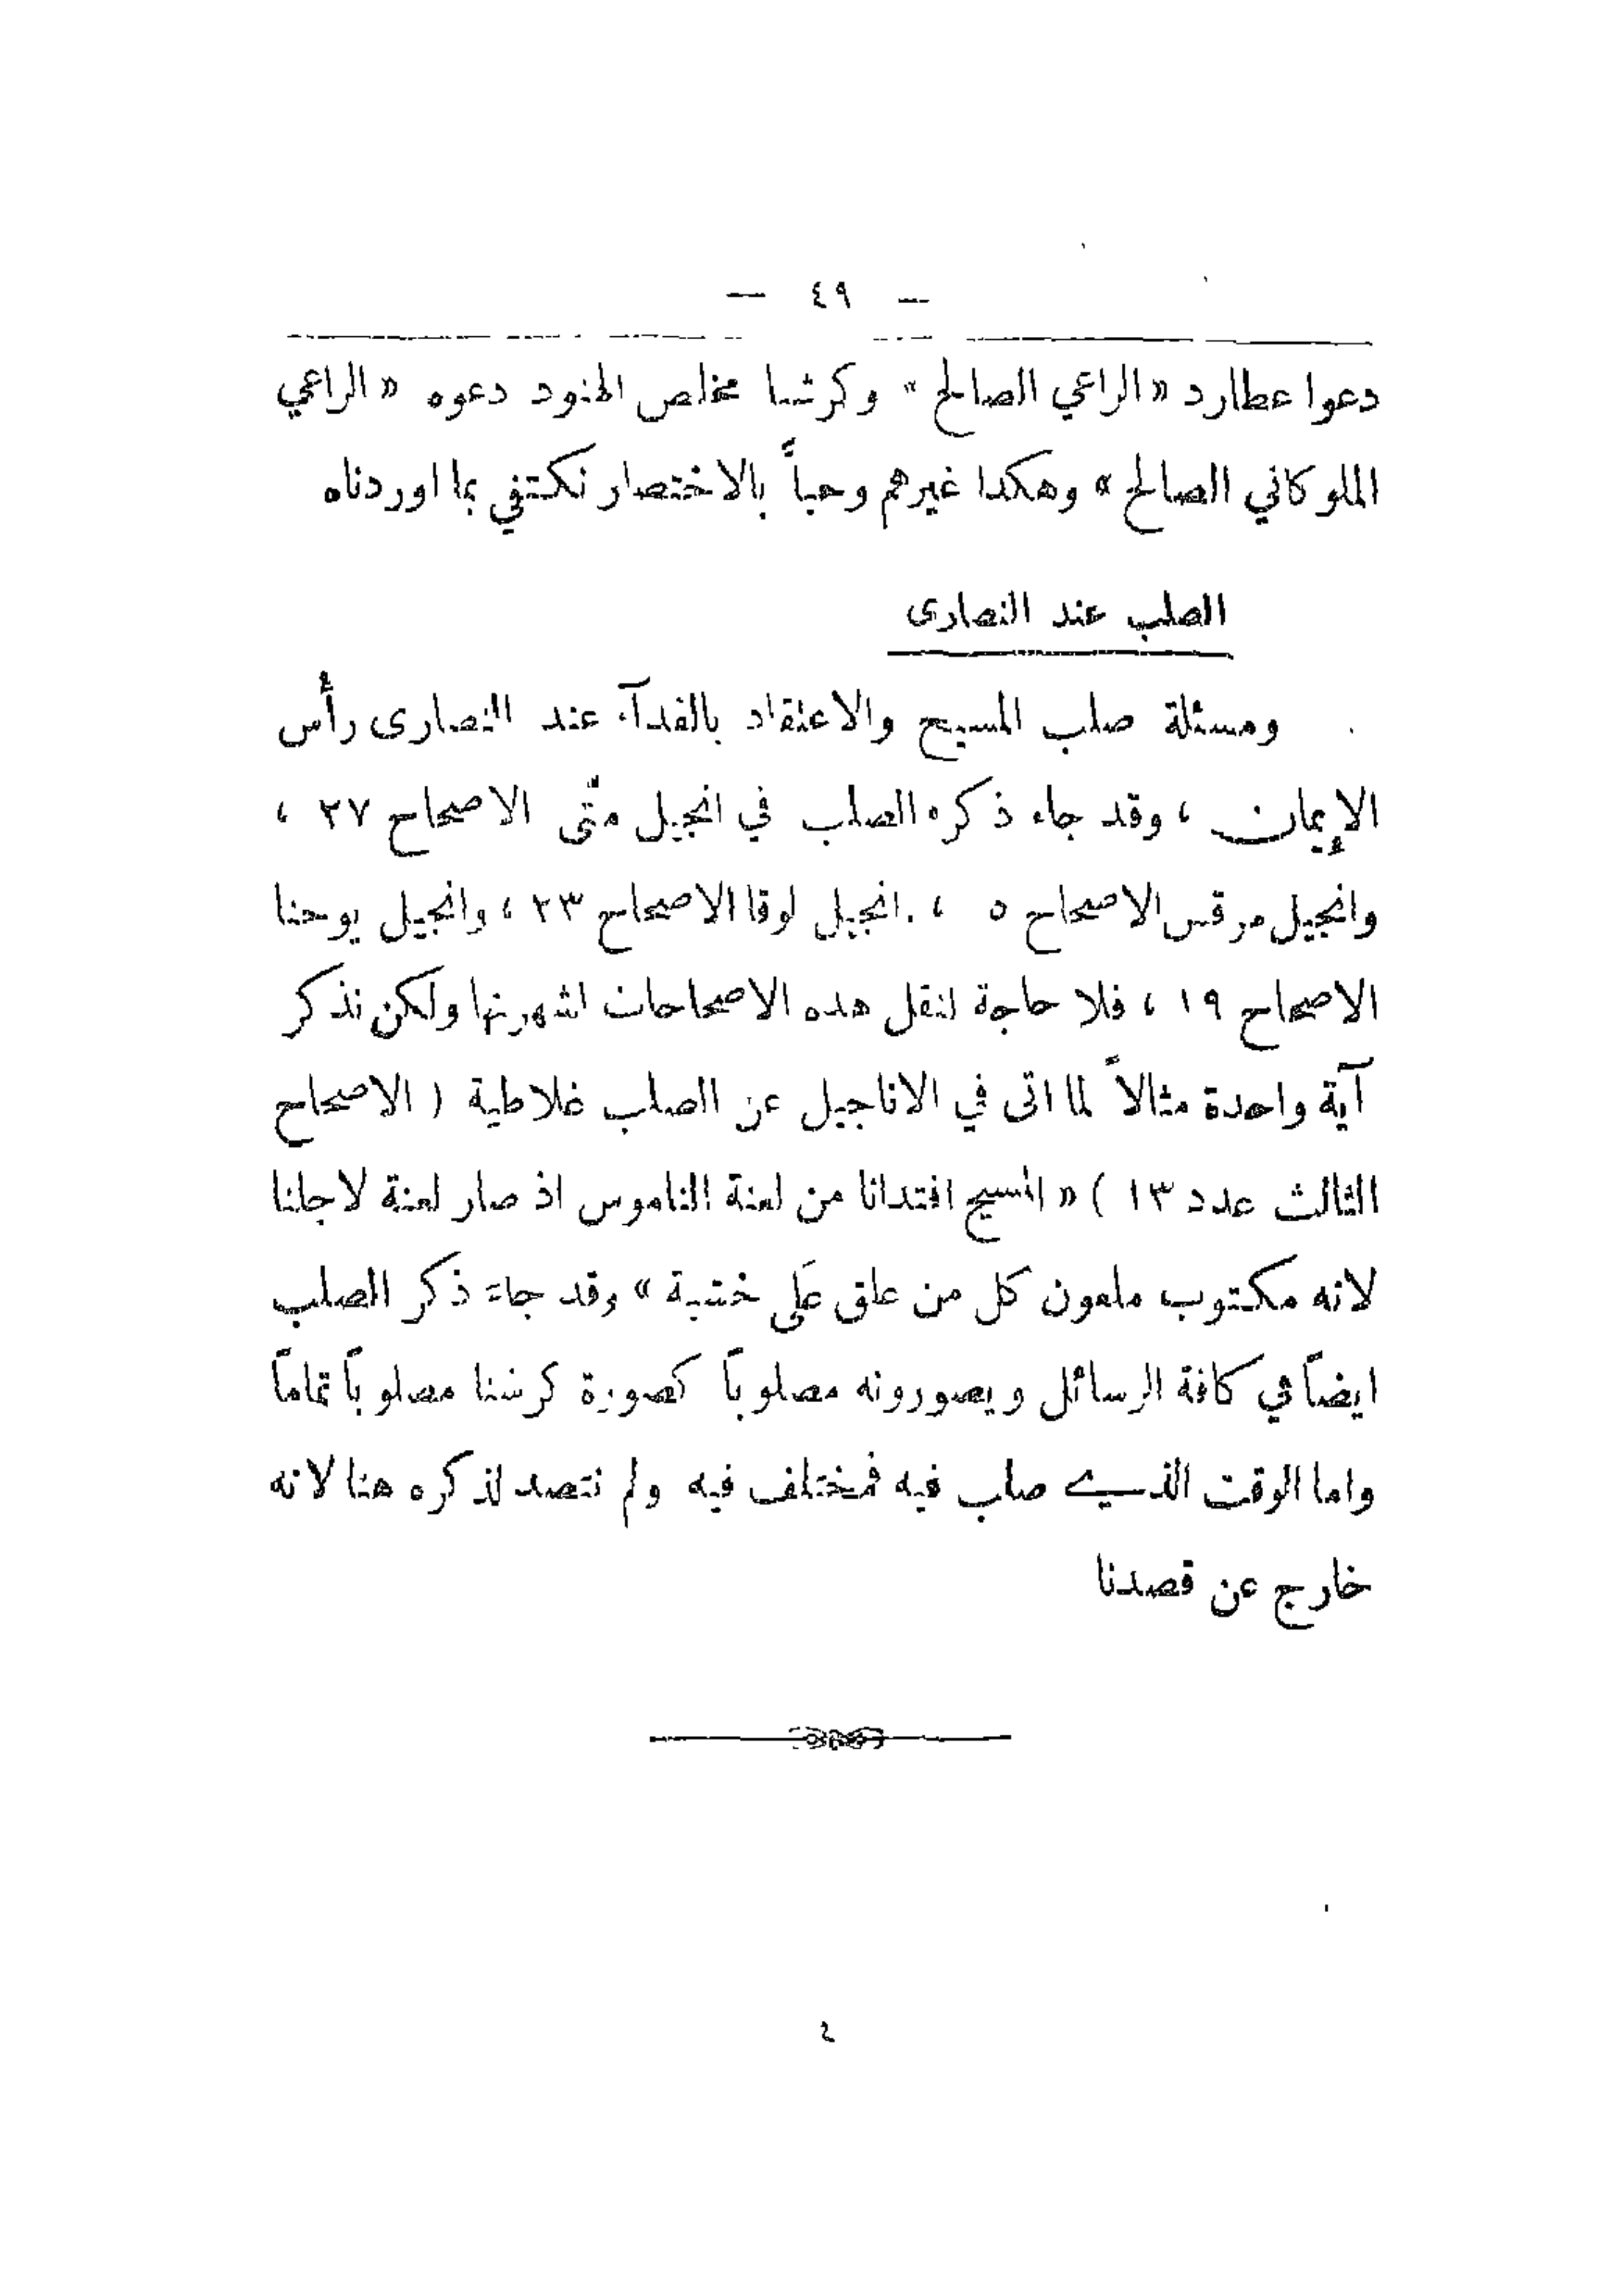 — ٤٩ —
دعوا عطارد « الراعي الصالح » وكرشنا مخلص الهنود دعوه « الراعي
الملوكاني الصالح » وهكذا غيرهم وحباً بالاختصار نكتفي بما اوردناه
الصلب عند النصارى
ومسئلة صلب المسيح والاعتقاد بالفدآء عند النصارى رأس
الإيمان ، وقد جاء ذكره الصلب في انجيل متّى الاصحاح ٢٧ ،
وانجيل مرقس الاصحاح ٥ ، انجيل لوقا الاصحاح ٢٣ ، وانجيل يوحنا
الاصحاح ١٩ ، فلا حاجة لنقل هذه الاصحاحات لشهرتها ولكن نذكر
آية واحدة مثالاً لما اتى في الاناجيل عن الصلب غلاطية ( الاصحاح
الثالث عدد ١٣ ) « المسيح افتدانا من لعنة الناموس اذ صار لعنة لاجلنا
لانه مكتوب ملعون كل من علق عَلَى خشبة » وقد جاءَ ذكر الصلب
ايضاً في كافة الرسائل ويصورونه مصلوباً كصورة كرشنا مصلوباً تماماً
واما الوقت الذي صلب فيه فمختلف فيه ولم نتصد لذكره هنا لانه
خارج عن قصدنا
٤